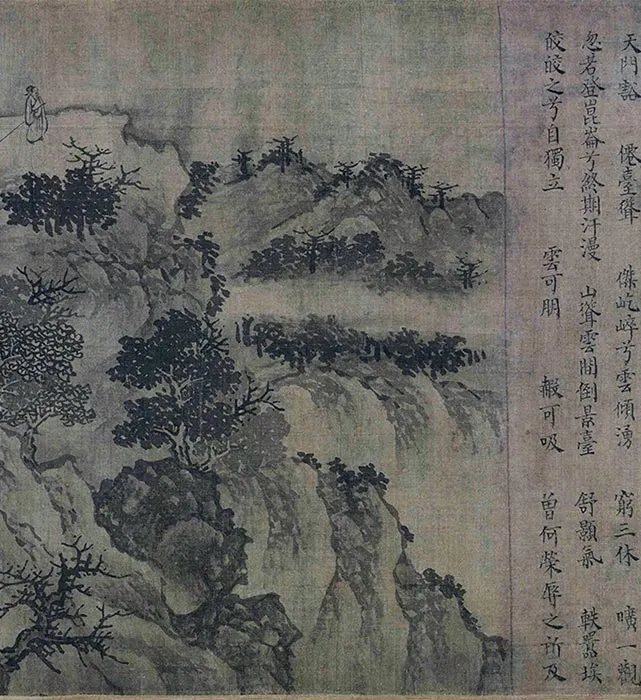 天門豁 僊臺聳 傑屹崒兮雲傾湧 窮三休 曠一觀
忽若登崑崙兮終期汗漫 山聳雲開倒景臺 舒顥氣 軼囂埃
皎皎之兮自獨立 雲可朋 霞可吸 曾何榮辱之所及